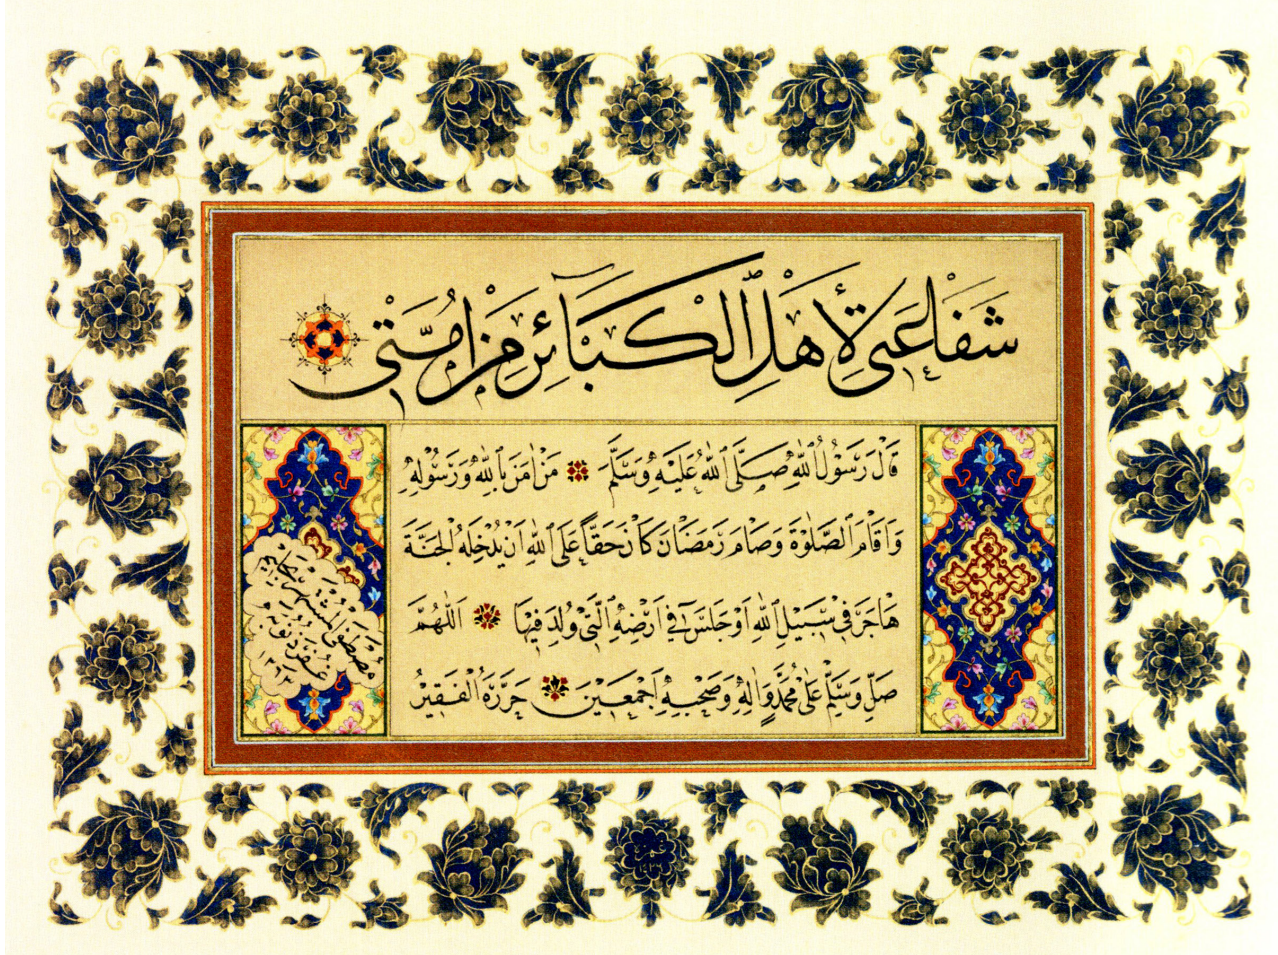 شفاعتى لأهل الكبآئر من امتى
قال رسول الله صلى الله عليه وسلم من امن بالله ورسوله
واقام الصلوة وصام رمضان كان حقا على الله ان يدخله الجنة
هاجر فى سبيل الله او جلس فى ارضه التى ولد فيها اللهم
صل وسلم على محمد واله وصحبه اجمعين حرره الفقير
مصطفى المشتهر
غفر ذنوبه